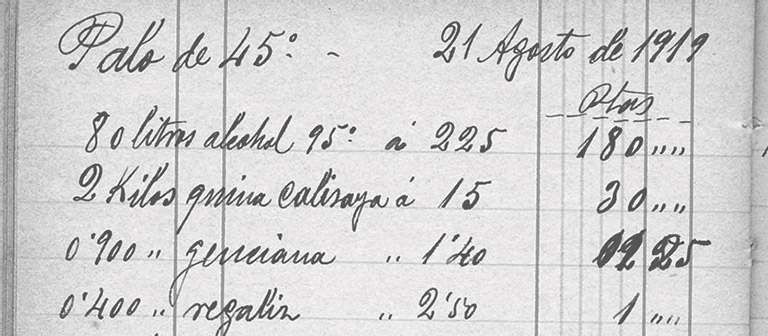 Palo de 45° - 21 Agosto de 1919
Ptas
80 litros alcohol 95° á 225 180 „„
2 Kilos quina Calisaya á 15 30 „„
0'900 „ genciana „ 1'40
0'400 „ regaliz „ 2'50 1 „„